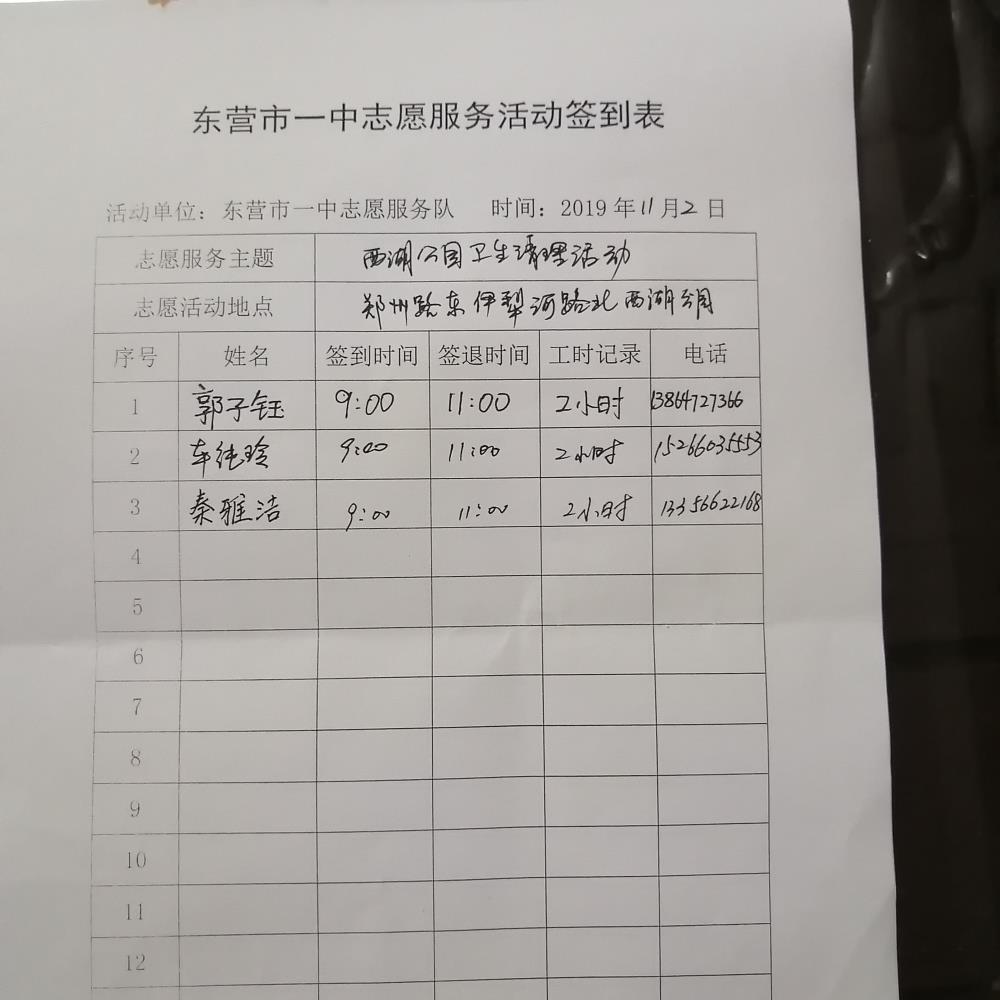 东营市一中志愿服务活动签到表
活动单位：东营市一中志愿服务队 时间：2019年11月2日
志愿服务主题 西湖公园卫生清理活动
志愿活动地点 郑州路东伊犁河路北西湖公园
序号 姓名 签到时间 签退时间 工时记录 电话
1 郭子钰 9:00 11:00 2小时 13864727366
2 车纯玲 9:00 11:00 2小时 15266035553
3 秦雅洁 9:00 11:00 2小时 13356622168
4
5
6
7
8
9
10
11
12